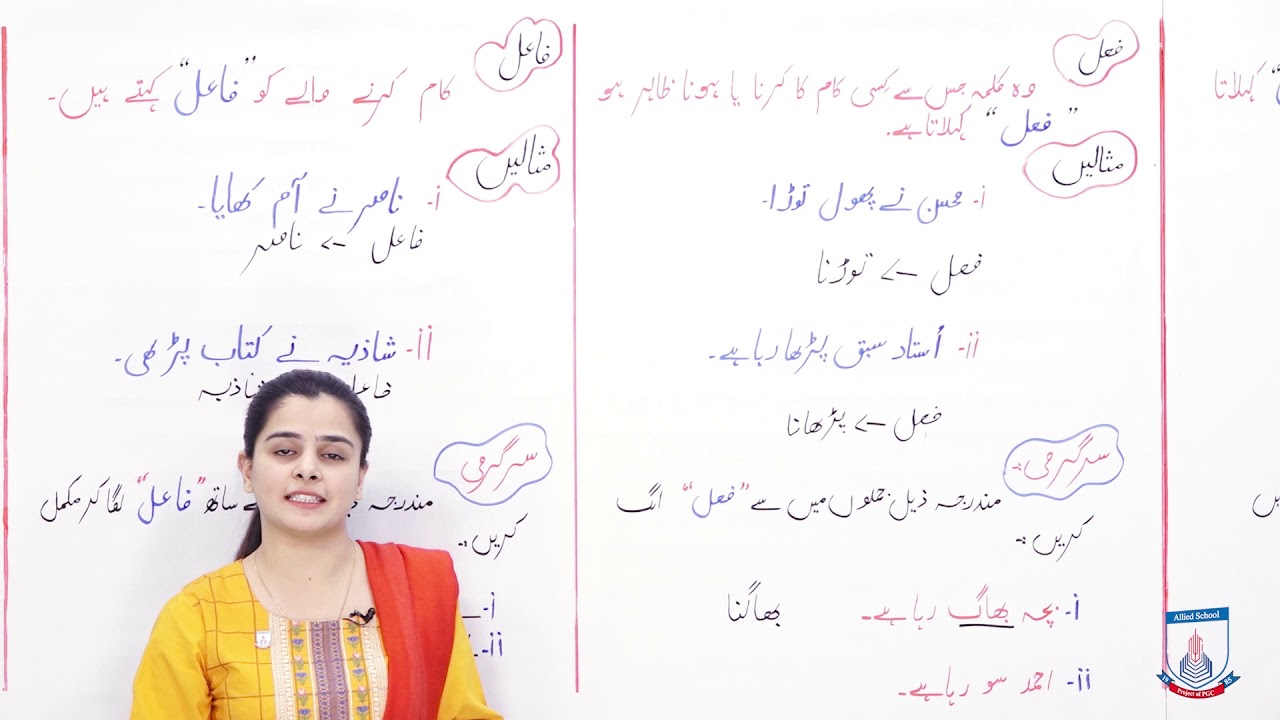 کہلاتا
فعل
وہ کلمہ جس سے کسی کام کا کرنا یا ہونا ظاہر ہو
"فعل" کہلاتا ہے۔
مثالیں
i- محسن نے پھول توڑا۔
فعل -> توڑنا
ii- اُستاد سبق پڑھا رہا ہے۔
فعل -> پڑھانا
سرگرمی:-
مندرجہ ذیل جملوں میں سے "فعل" الگ
کریں:-
i- بچہ بھاگ رہا ہے۔ بھاگنا
ii- احمد سو رہا ہے۔
فاعل
کام کرنے والے کو "فاعل" کہتے ہیں۔
مثالیں
i- ناصر نے آم کھایا۔
فاعل -> ناصر
ii- شاذیہ نے کتاب پڑھی۔
سرگرمی
مندرجہ ساتھ "فاعل" لگا کر مکمل
کریں:-
i-
ii-
Allied School
19 85
Project of PGC